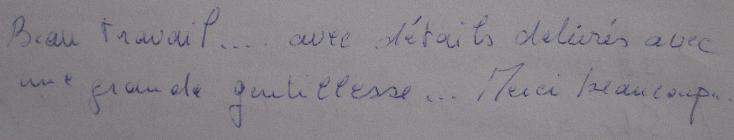 Beau travail.... avec détails délivrés avec
une grande gentillesse... Merci beaucoup...